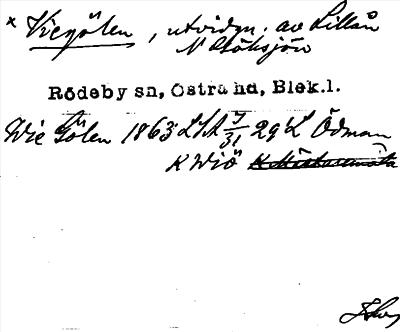 × Viegölen, utvidgn. av Lillån
N Stöksjön
Rödeby sn, Östra hd, Blek.l.
Wie Gölen 1863 LSA J/31 29 L Ödman
K Wiö